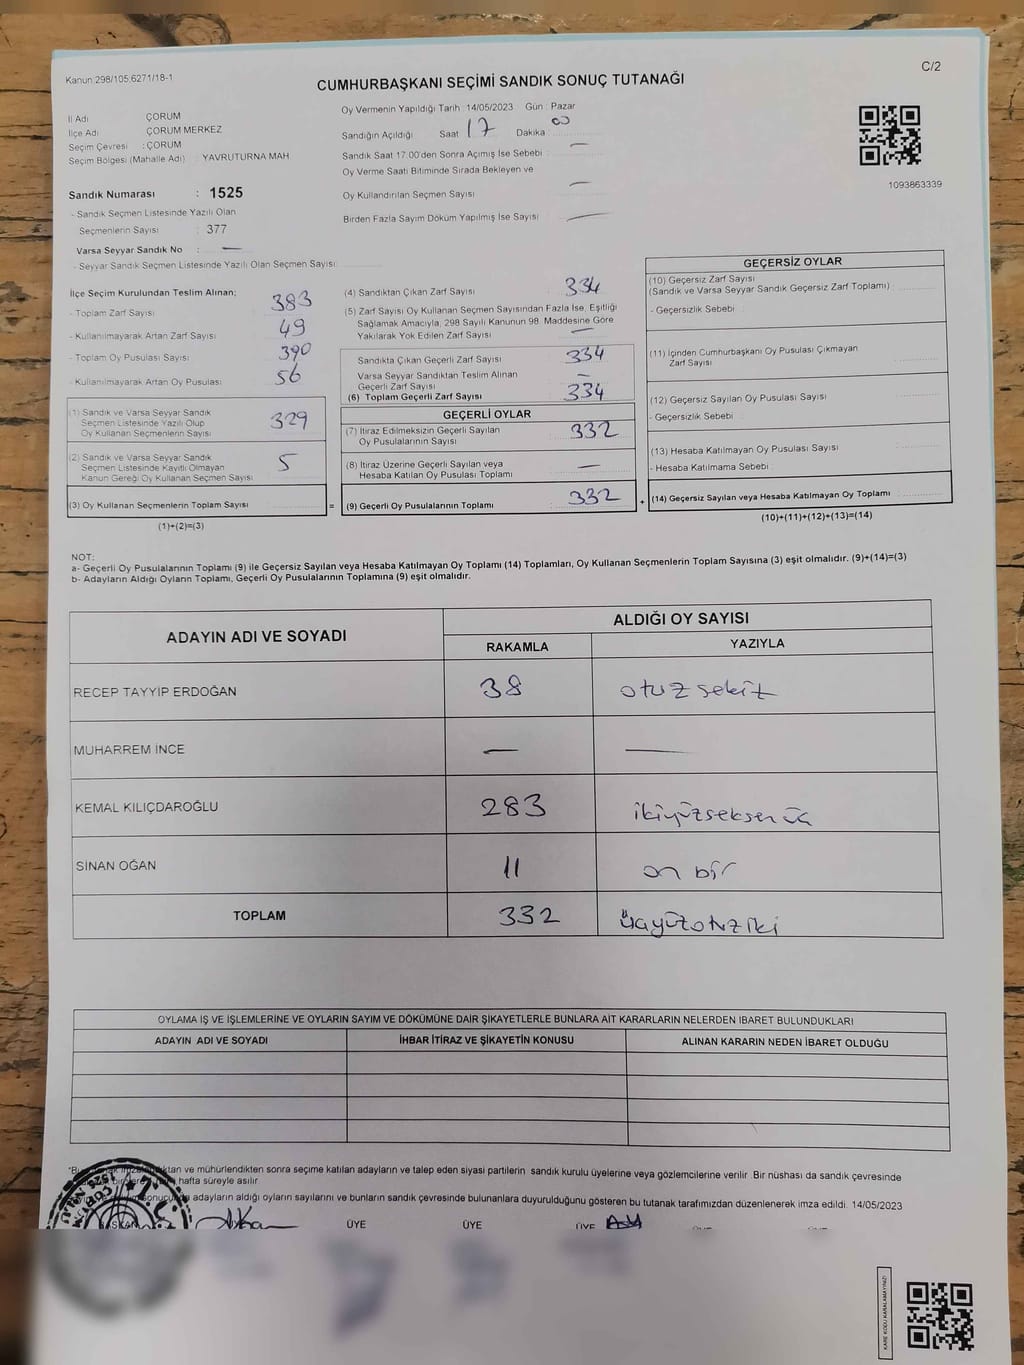 Kanun 298/105,6271/18-1
C/2
CUMHURBAŞKANI SEÇİMİ SANDIK SONUÇ TUTANAĞI
İl Adı ÇORUM
İlçe Adı ÇORUM MERKEZ
Seçim Çevresi : ÇORUM
Seçim Bölgesi (Mahalle Adı) : YAVRUTURNA MAH
Sandık Numarası : 1525
- Sandık Seçmen Listesinde Yazılı Olan
Seçmenlerin Sayısı : 377
Varsa Seyyar Sandık No : —
- Seyyar Sandık Seçmen Listesinde Yazılı Olan Seçmen Sayısı:
Oy Vermenin Yapıldığı Tarih : 14/05/2023 Gün : Pazar
Sandığın Açıldığı Saat 17 Dakika : 00
Sandık Saat 17.00'den Sonra Açımış İse Sebebi : —
Oy Verme Saati Bitiminde Sırada Bekleyen ve
Oy Kullandırılan Seçmen Sayısı —
Birden Fazla Sayım Döküm Yapılmış İse Sayısı —
1093863339
İlçe Seçim Kurulundan Teslim Alınan;
- Toplam Zarf Sayısı 383
- Kullanılmayarak Artan Zarf Sayısı 49
- Toplam Oy Pusulası Sayısı 390
- Kullanılmayarak Artan Oy Pusulası 56
(1) Sandık ve Varsa Seyyar Sandık
Seçmen Listesinde Yazılı Olup
Oy Kullanan Seçmenlerin Sayısı 329
(2) Sandık ve Varsa Seyyar Sandık
Seçmen Listesinde Kayıtlı Olmayan
Kanun Gereği Oy Kullanan Seçmen Sayısı 5
(3) Oy Kullanan Seçmenlerin Toplam Sayısı
(1)+(2)=(3)
=
(4) Sandıktan Çıkan Zarf Sayısı 334
(5) Zarf Sayısı Oy Kullanan Seçmen Sayısından Fazla İse, Eşitliği
Sağlamak Amacıyla, 298 Sayılı Kanunun 98. Maddesine Göre
Yakılarak Yok Edilen Zarf Sayısı —
Sandıkta Çıkan Geçerli Zarf Sayısı 334
Varsa Seyyar Sandıktan Teslim Alınan
Geçerli Zarf Sayısı —
(6) Toplam Geçerli Zarf Sayısı 334
GEÇERLİ OYLAR
(7) İtiraz Edilmeksizin Geçerli Sayılan
Oy Pusulalarının Sayısı 332
(8) İtiraz Üzerine Geçerli Sayılan veya
Hesaba Katılan Oy Pusulası Toplamı —
(9) Geçerli Oy Pusulalarının Toplamı 332
+
GEÇERSİZ OYLAR
(10) Geçersiz Zarf Sayısı
(Sandık ve Varsa Seyyar Sandık Geçersiz Zarf Toplamı) :
- Geçersizlik Sebebi :
(11) İçinden Cumhurbaşkanı Oy Pusulası Çıkmayan
Zarf Sayısı
(12) Geçersiz Sayılan Oy Pusulası Sayısı
- Geçersizlik Sebebi :
(13) Hesaba Katılmayan Oy Pusulası Sayısı
- Hesaba Katılmama Sebebi :
(14) Geçersiz Sayılan veya Hesaba Katılmayan Oy Toplamı
(10)+(11)+(12)+(13)=(14)
NOT:
a- Geçerli Oy Pusulalarının Toplamı (9) ile Geçersiz Sayılan veya Hesaba Katılmayan Oy Toplamı (14) Toplamları, Oy Kullanan Seçmenlerin Toplam Sayısına (3) eşit olmalıdır. (9)+(14)=(3)
b- Adayların Aldığı Oyların Toplamı, Geçerli Oy Pusulalarının Toplamına (9) eşit olmalıdır.
ADAYIN ADI VE SOYADI
ALDIĞI OY SAYISI
RAKAMLA YAZIYLA
RECEP TAYYİP ERDOĞAN 38 otuz sekiz
MUHARREM İNCE — —
KEMAL KILIÇDAROĞLU 283 ikiyüzseksen üç
SİNAN OĞAN 11 on bir
TOPLAM 332 üçyüzotuz iki
OYLAMA İŞ VE İŞLEMLERİNE VE OYLARIN SAYIM VE DÖKÜMÜNE DAİR ŞİKAYETLERLE BUNLARA AİT KARARLARIN NELERDEN İBARET BULUNDUKLARI
ADAYIN ADI VE SOYADI İHBAR İTİRAZ VE ŞİKAYETİN KONUSU ALINAN KARARIN NEDEN İBARET OLDUĞU
ve mühürlendikten sonra seçime katılan adayların ve talep eden siyasi partilerin sandık kurulu üyelerine veya gözlemcilerine verilir. Bir nüshası da sandık çevresinde
hafta süreyle asılır.
adayların aldığı oyların sayılarını ve bunların sandık çevresinde bulunanlara duyurulduğunu gösteren bu tutanak tarafımızdan düzenlenerek imza edildi. 14/05/2023
BAŞKAN ÜYE ÜYE ÜYE
KARE KODU KARALAMAYINIZ!